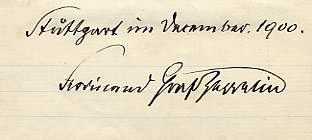 Stuttgart im December. 1900.
Ferdinand Graf Zeppelin